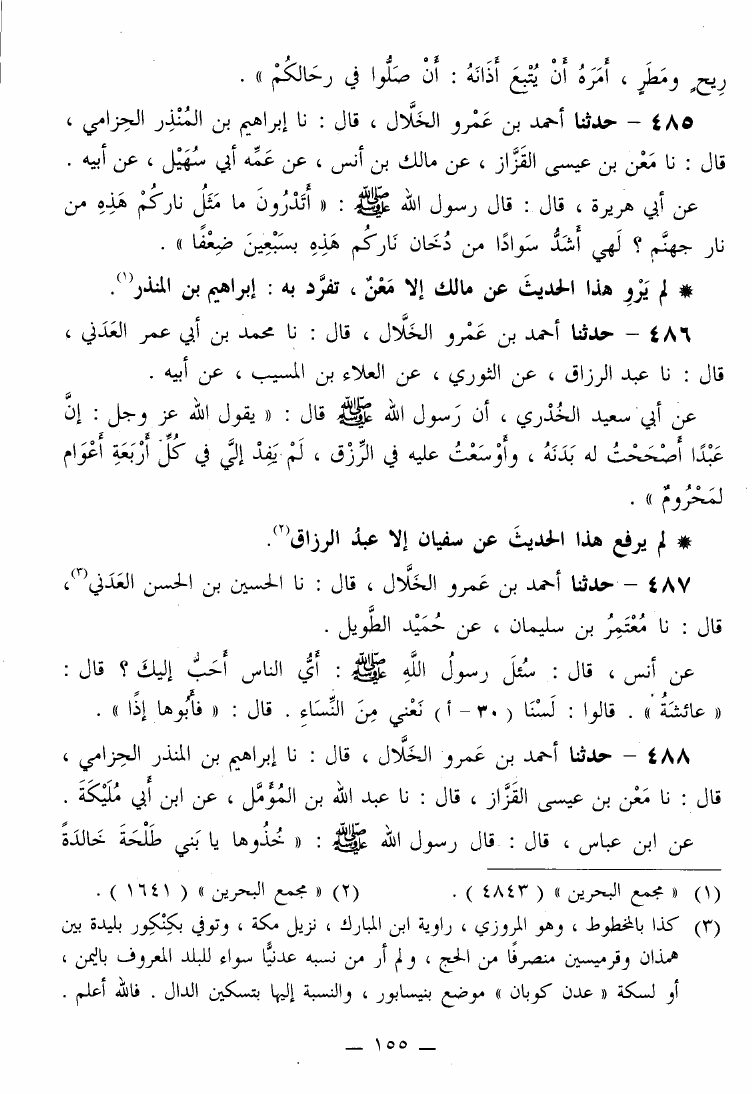 رِيحٍ ومَطَرٍ ، أَمَرَهُ أَنْ يُتْبِعَ أَذَانَهُ : أَنْ صَلُّوا في رحَالكُمْ » .
٤٨٥ – حدثنا أحمد بن عَمْرو الخَلَّال ، قال : نا إبراهيم بن المُنْذِر الحِزامي ،
قال : نا مَعْن بن عيسى القَزَّاز ، عن مالك بن أنس ، عن عَمِّه أبي سُهَيْل ، عن أبيه .
عن أبي هريرة ، قال : قال رسول الله ﷺ : « أَتَدْرُونَ ما مَثَلُ ناركُمْ هَذِهِ من
نار جهنَّم ؟ لَهي أَشَدُّ سَوادًا من دُخَان نَاركُم هَذِهِ بسَبْعِينَ ضِعْفًا » .
* لم يَرْوِ هذا الحديثَ عن مالك إلا مَعْنٌ ، تفرَّد به : إبراهيم بن المنذر(١).
٤٨٦ – حدثنا أحمد بن عَمْرو الخَلَّال ، قال : نا محمد بن أبي عمر العَدَني ،
قال : نا عبد الرزاق ، عن الثوري ، عن العلاء بن المسيب ، عن أبيه .
عن أبي سعيد الخُدْري ، أن رَسول الله ﷺ قال : « يقول الله عز وجل : إنَّ
عَبْدًا أَصْحَحْتُ له بَدَنَهُ ، وأَوْسَعْتُ عليه في الرِّزْق ، لَمْ يَفِدْ إليَّ في كُلِّ أَرْبَعَةِ أَعْوَام
لمَحْرُومٌ » .
* لم يرفع هذا الحديثَ عن سفيان إلا عبدُ الرزاق(٢).
٤٨٧ – حدثنا أحمد بن عَمرو الخَلَّال ، قال : نا الحسين بن الحسن العَدَني(٣)،
قال : نا مُعْتَمِرُ بن سليمان ، عن حُمَيْد الطَّويل .
عن أنس ، قال : سُئلَ رسولُ اللَّهِ ﷺ : أَيُّ الناس أَحَبُّ إليكَ ؟ قال :
« عائشَةُ » . قالوا : لَسْنَا ( ٣٠ – أ ) نَعْني مِنَ النِّسَاءِ . قال : « فأَبُوها إذًا » .
٤٨٨ – حدثنا أحمد بن عَمرو الخَلَّال ، قال : نا إبراهيم بن المنذر الحِزامي ،
قال : نا مَعْن بن عيسى القَزَّاز ، قال : نا عبد الله بن المُؤَمَّل ، عن ابن أَبي مُلَيْكَةَ .
عن ابن عباس ، قال : قال رسول الله ﷺ : « خُذُوها يا بَني طَلْحَةَ خَالدَةً
(١) « مجمع البحرين » ( ٤٨٤٣ ) . (٢) « مجمع البحرين » ( ١٦٤١ ) .
(٣) كذا بالمخطوط ، وهو المروزي ، راوية ابن المبارك ، نزيل مكة ، وتوفي بكِنْكِور بليدة بين
همذان وقرميسين منصرفًا من الحج ، ولم أر من نسبه عدنيًّا سواء للبلد المعروف باليمن ،
أو لسكة « عدن كوبان » موضع بنيسابور ، والنسبة إليها بتسكين الدال . فالله أعلم .
— ١٥٥ —